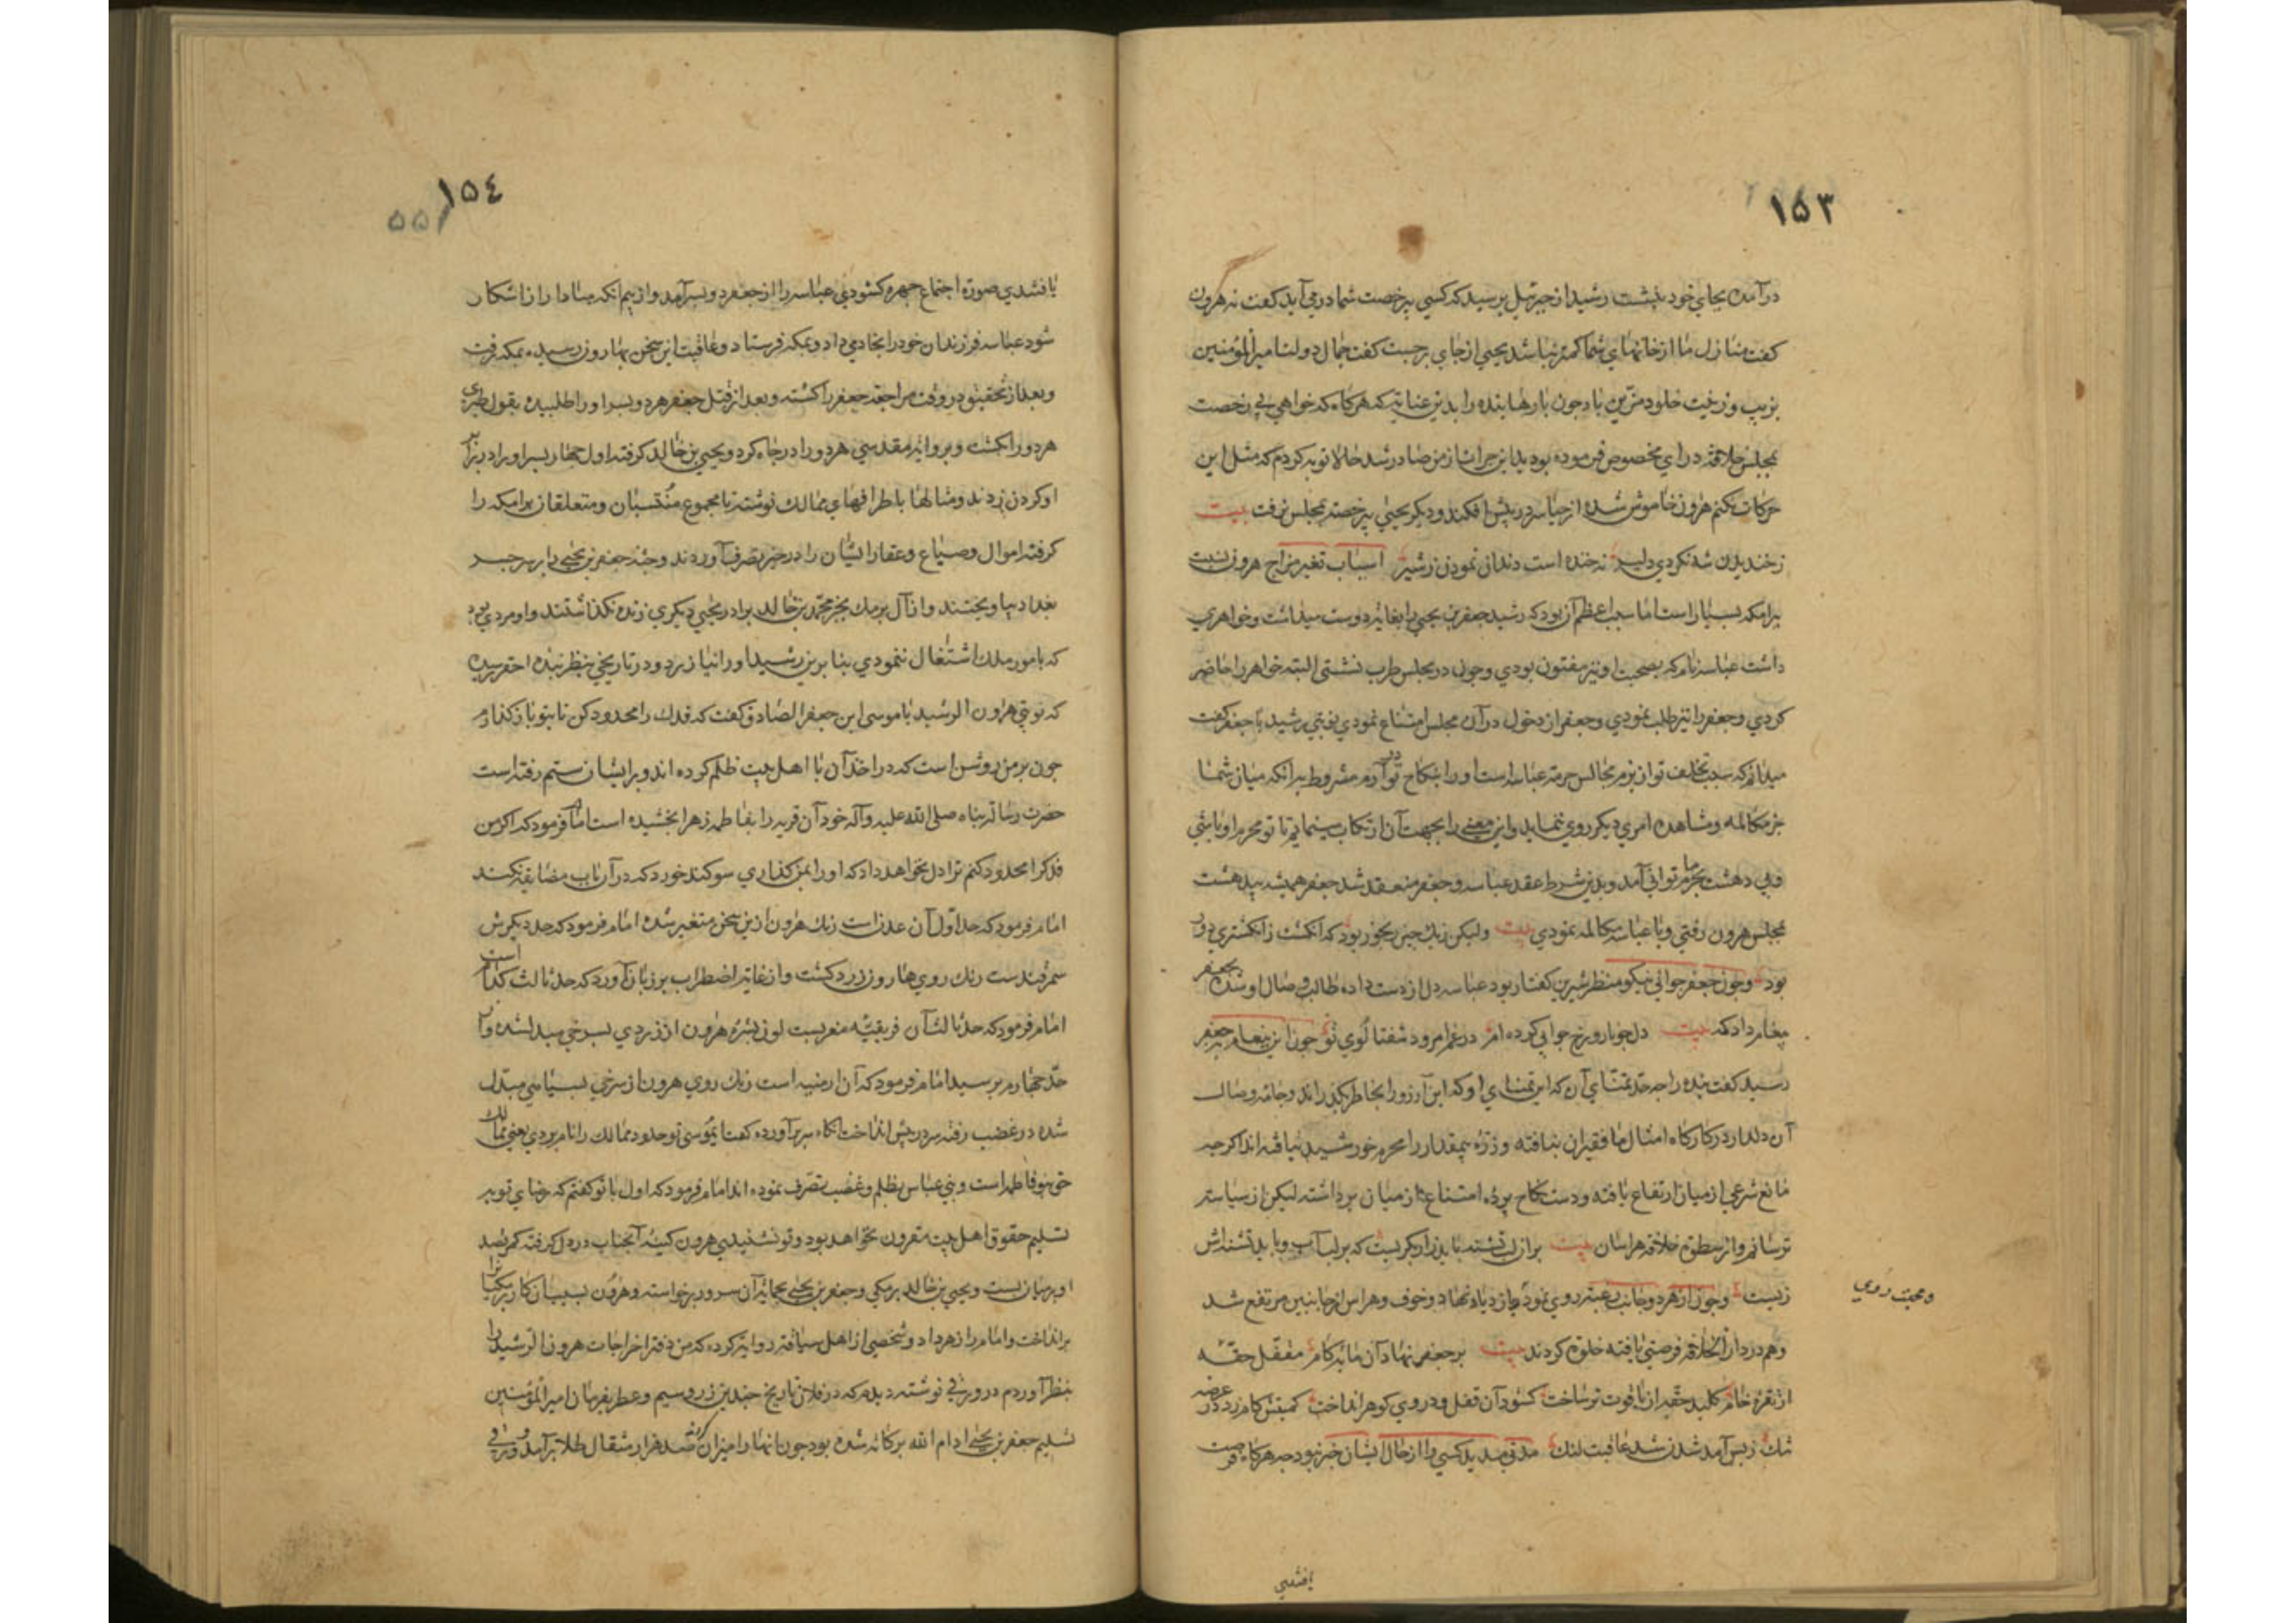 ۱۵۳
درآمده بجای خود بنشست رشید از جبرئیل پرسید که کسی بیرخصت شما درمی آید کفت نه هرون
کفت منازل ما از خانهای شما کمتر نباشد یحیی از جای برجست کفت جمال دولت امیرالمؤمنین
بزیب و زینت خلود مزین باد چون بارها بنده را بدین عنایت که هرکاه که خواهی بی رخصت
بمجلس خلافة درای مخصوص فرموده بودید این جرات از من صادر شد حالا توبه کردم که مثل این
حرکات نکنم هرون خاموش شده از حیا سر در پیش افکند و دیکر یحیی بیرخصة بمجلس نرفت بیت
ز خندیدن شه نکردی دلیر نه خنده است دندان نمودن ز شیر اسباب تغیر مزاج هرون نسبت
برامکه بسیار است اما سبب اعظم آن بود که رشید جعفر بن یحیی را بغایة دوست میداشت و خواهری
داشت عباسه نام که بصحبت او نیز مفتون بودی و چون در مجلس طرب نشستی البته خواهر را حاضر
کردی و جعفر را نیز طلب نمودی و جعفر از دخول در آن مجلس امتناع نمودی نوبتی رشید با جعفر کفت
میدانم که سبب تخلف تو از بزم مجالس حرمة عباسه است او را بنکاح تو در آورم مشروط بر آنکه میان شما
جز مکالمه و مشاهده امری دیکر روی ننماید و این معنی را بجهت آن ارتکاب مینمایم تا تو محرم او باشی
و بی دهشت بحرم ما توانی آمد و بدین شرط عقد عباسه و جعفر منعقد شد جعفر همیشه بیدهشت
بمجلس هرون رفتی و با عباسه مکالمه نمودی بیت ولیکن زنک چین بخور بود که انکشت ز انکشتری دور
بود و چون جعفر جوانی نیکو منظر شیرین کفتار بود عباسه دل از دست داده طالب وصال او شده بجعفر
پیغام داد که بیت دلجو بارو رخ جوابی کرده ام در غم امرود شفتالوی تو چون این پیغام بجعفر
رسید کفت بنده را چه حد تمنای آن که این تمنای او که این آرزو را بخاطر بکذراند و جامه وصال
آن دلدار در کارکاه امثال ما فقیران نبافته و ذره بیمقدار را محرم خورشید نیافته اند اکرچه
مانع شرعی از میان ارتفاع یافته و دست نکاح پرده امتناع از میان برداشته لیکن از سیاسة
ترسانم و از سطوة خلافة هراسان بیت بران تشنه باید زار بکریست که بر لب آب و باید تشنه اش
زیست و چون از هر دو جانب رغبة روی نمود و محبت روی بازدیاد نهاد و خوف و هراس از جانبین مرتفع شد
و هم در دار الخلافة فرصتی یافته خلوة کردند بیت بر جعفر نهاد آن مایه کام مقفل حقه
از نقره خام کلید حقه از یاقوت تر ساخت کشود آن قفل و در وی کوهر انداخت کمیتش کام زد در عرصه
تنک ز بس آمد شدن شد عاقبت لنک مدتی مدید کسی را از حال ایشان خبر نبود چه هرکاه فرصت
یافتندی
۱۵۴
۵۵
یافتندی صورة اجتماع چهره کشودی عباسه را از جعفر دو پسر آمد و از بیم آنکه مبادا راز اشکار
شود عباسه فرزندان خود را بخادمی داد و بمکه فرستاد و عاقبت این سخن بهارون رسیده بمکه رفت
و بعد از تحقیق در وقت مراجعة جعفر را کشته و بعد از قتل جعفر هر دو پسر او را طلبیده بقول طبری
هر دو را کشت و بروایة مقدسی هر دو را در چاه کرد و یحیی بن خالد کرفته اول چهار پسر او را در برابر
او کردن زدند و مثالها باطرافهای ممالک نوشته تا مجموع منتسبان و متعلقان برامکه را
کرفته اموال و ضیاع و عقار ایشان را در حیز تصرف آوردند و جثه جعفر بن یحیی را بر سر جسر
بغداد بیاویختند و از آل برمک بجز محمد بن خالد برادر یحیی دیکری زنده نکذاشتند و او مردی بود
که بامور ملک اشتغال ننمودی بنا برین رشید او را نیازرد و در تاریخی بنظر بنده احقر رسیده
که نوبتی هارون الرشید با موسی ابن جعفر الصادق کفت که فدک را محدود کن تا بتو باز کذارم
چون بر من روشن است که در اخذ آن با اهل بیت ظلم کرده اند و بر ایشان ستم رفته است
حضرت رسالة پناه صلی الله علیه وآله خود آن قریه را بفاطمه زهرا بخشیده است امام فرمود که اکر من
فدک را محدود کنم ترا دل نخواهد داد که او را بمن کذاری سوکند خورد که در آن باب مضایقه نکند
امام فرمود که حد اول آن عدن است رنک هرون ازین سخن متغیر شده امام فرمود که حد دیکرش
سمرقندست رنک روی هارون زرد کشت و از غایة اضطراب بر زبان آورد که حد ثالث کدام است
امام فرمود که حد ثالث آن فریقیه مغربست لون بشره هارون از زردی بسرخی مبدل شده و از
حد چهارم پرسید امام فرمود که آن ارمنیه است رنک روی هرون از سرخی بسیاهی مبدل
شده در غضب رفته سر در پیش انداخت آنکاه سر برآورده کفت یا موسی تو حدود ممالک را نام بردی یعنی ممالک
حق بنو فاطمه است و بنی عباس بظلم و غضب تصرف نموده اند امام فرمود که اول با تو کفتم که رضای تو بر
تسلیم حقوق اهل بیت مقرون نخواهد بود و تو نشنیدی هرون کینه آنجناب در دل کرفته کمر بقصد
او بر میان بست و یحیی بن خالد برمکی و جعفر بن یحیی بحمایة آن سرور برخواسته و هارون بسبب آن کار برمکیان را
برانداخت و امام را زهر داد و شخصی از اهل سیاقة روایة کرده که من دفتر اخراجات هرون الرشید را
بنظر آوردم در ورقی نوشته دیدم که در فلان تاریخ چندین زر و سیم و عطر بفرمان امیرالمؤمنین
تسلیم جعفر بن یحیی ادام الله برکاته شده بود چون آنها را میزان کردم صد هزار مثقال طلا برآمد و در ورقی